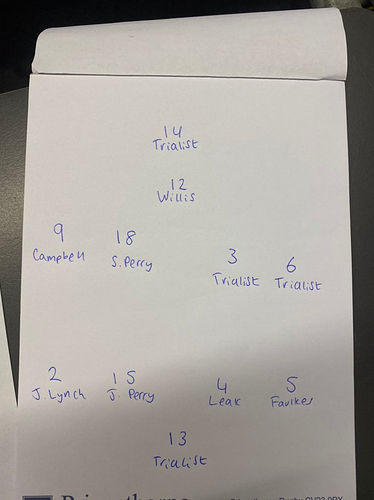 14
Trialist
12
Willis
9 18
Campbell S. Perry
3 6
Trialist Trialist
2 15 4 5
J Lynch J. Perry Leak Faulkes
13
Trialist